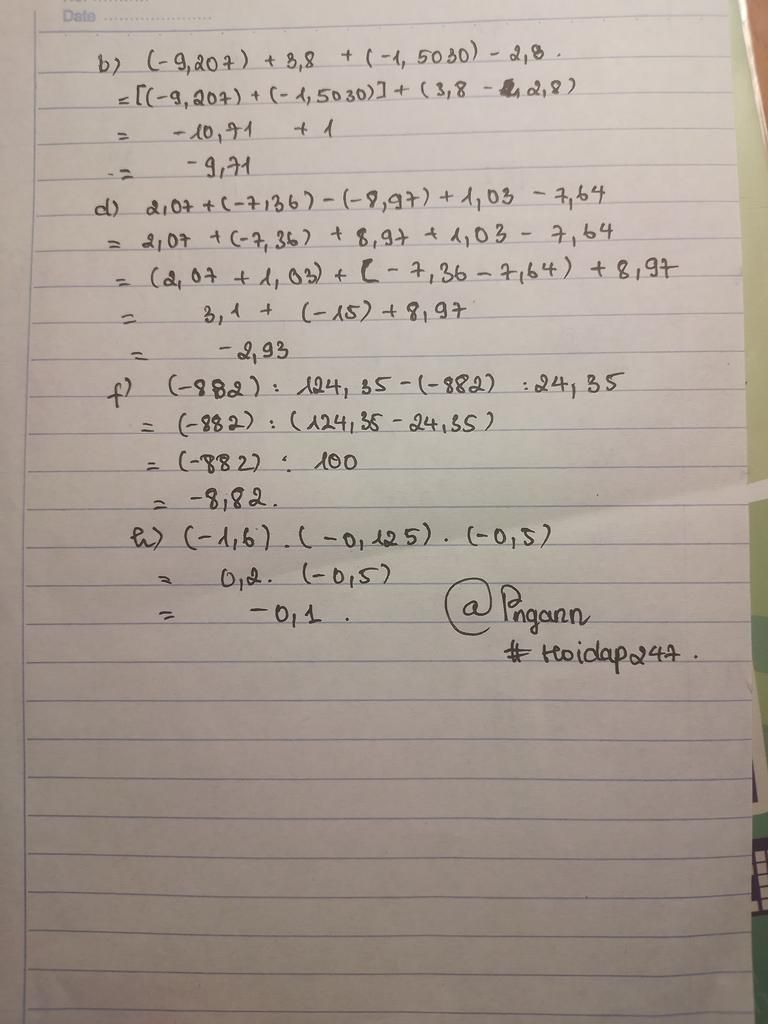 Date
b) (-9,207) + 3,8 + (-1,5030) - 2,8.
= [(-9,207) + (-1,5030)] + (3,8 - 2,8)
= -10,71 + 1
= -9,71
d) 2,07 + (-7,36) - (-8,97) + 1,03 - 7,64
= 2,07 + (-7,36) + 8,97 + 1,03 - 7,64
= (2,07 + 1,03) + (-7,36 - 7,64) + 8,97
= 3,1 + (-15) + 8,97
= -2,93
f) (-882) : 124,35 - (-882) : 24,35
= (-882) : (124,35 - 24,35)
= (-882) : 100
= -8,82.
h) (-1,6) . (-0,125) . (-0,5)
= 0,2 . (-0,5)
= -0,1 .
@Pngann
# Hoidap247.